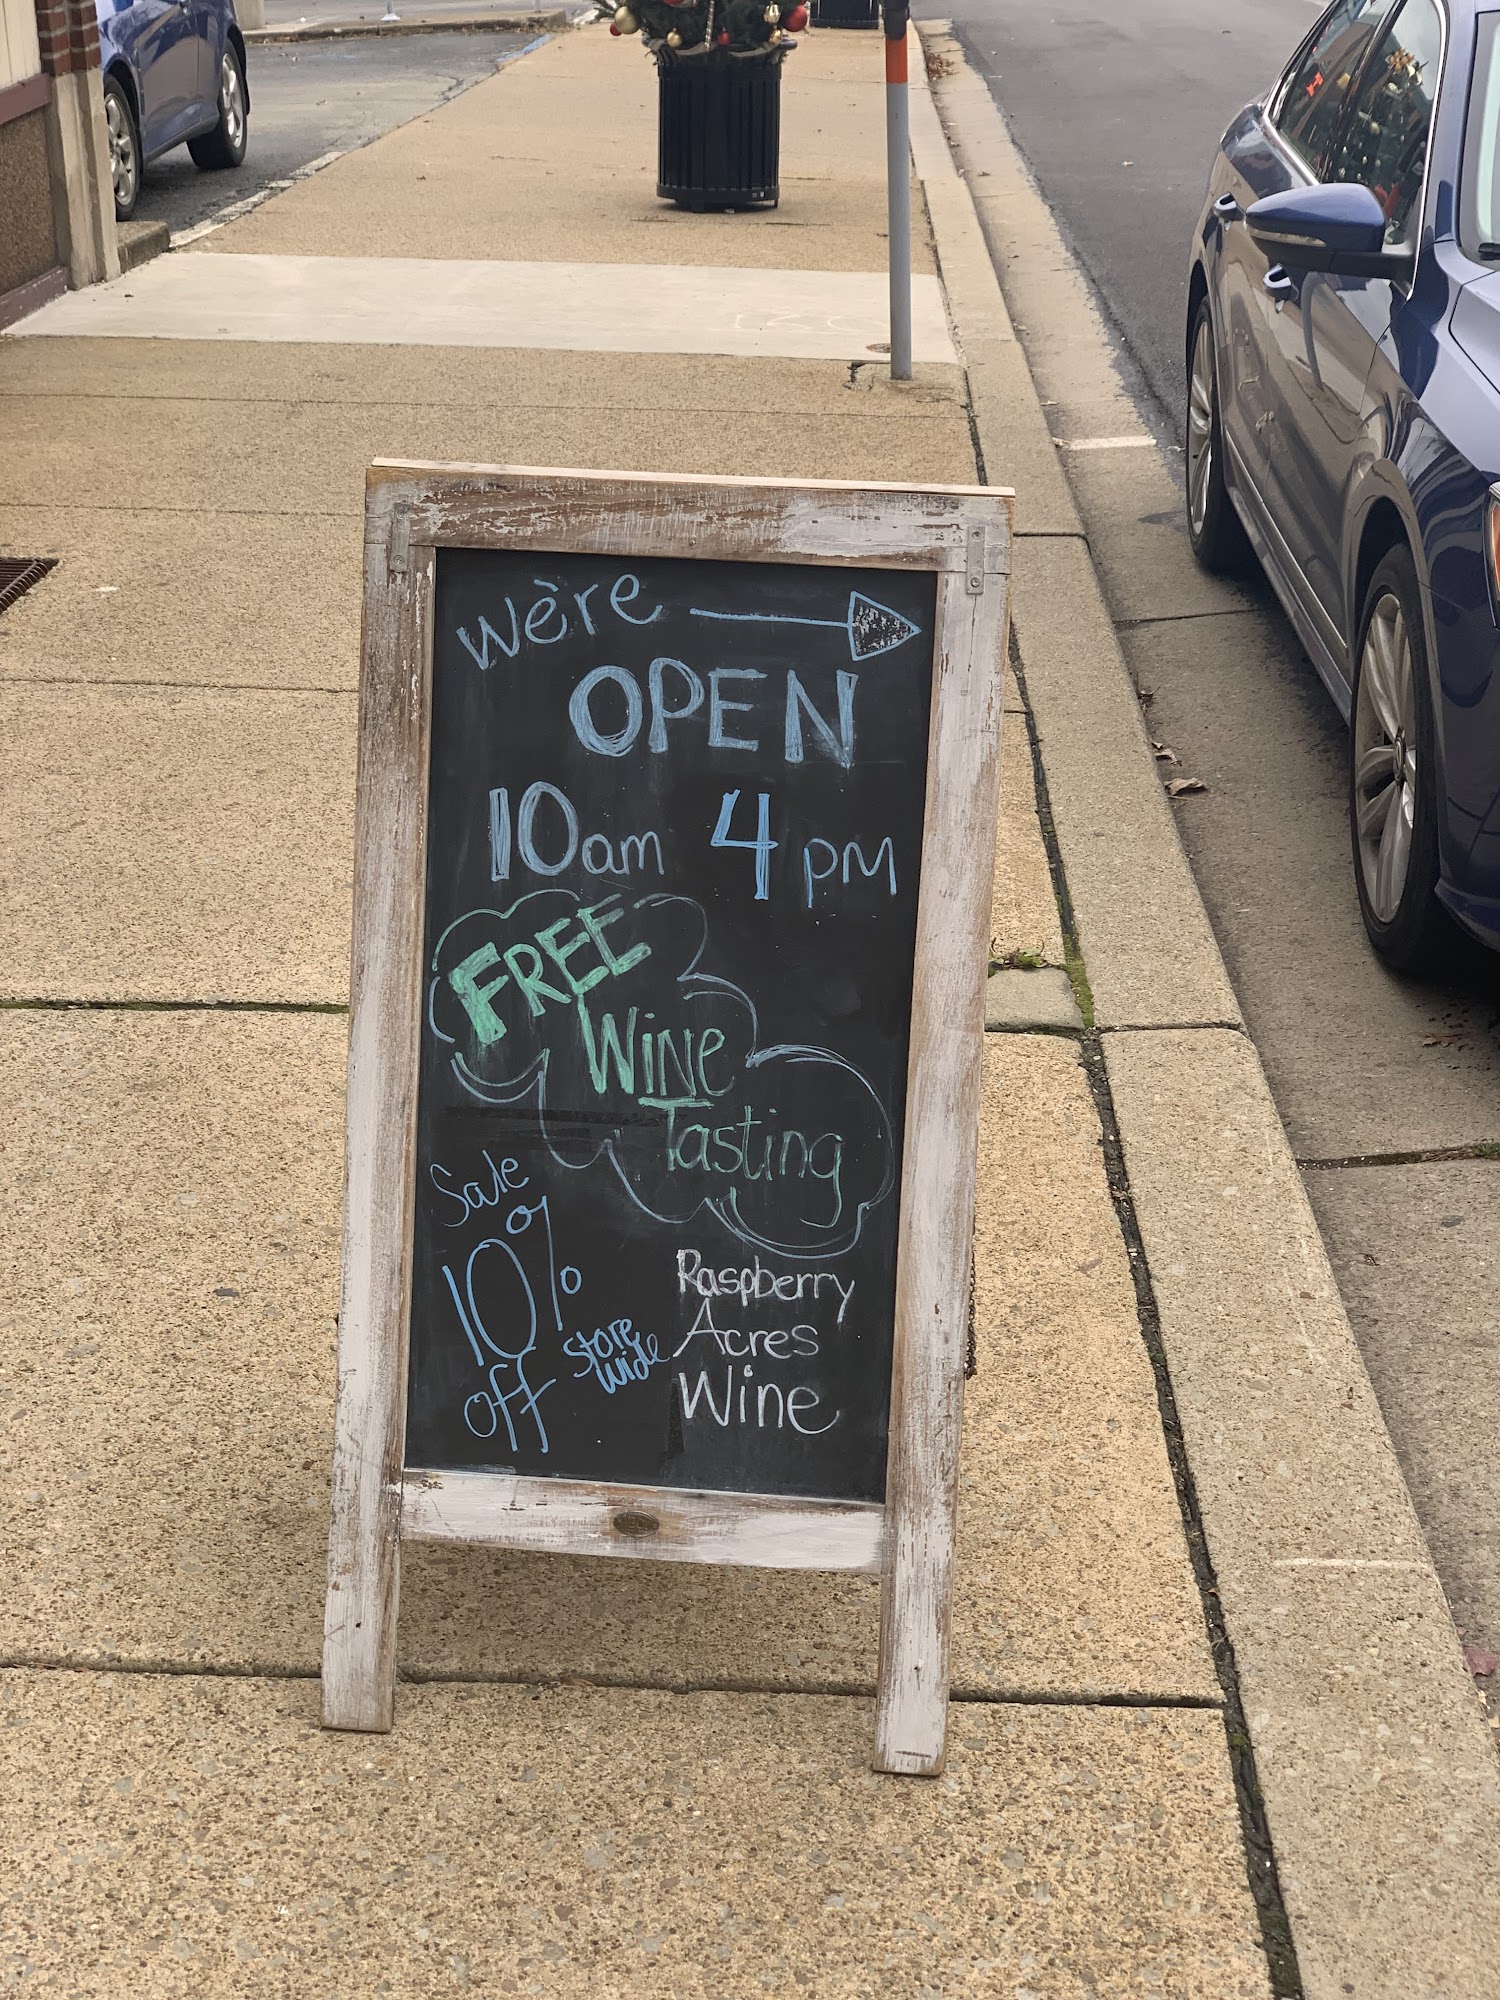 we're
OPEN
10am 4 pm
FREE
Wine
Tasting
Sale
10%
off
Store
wide
Raspberry
Acres
Wine